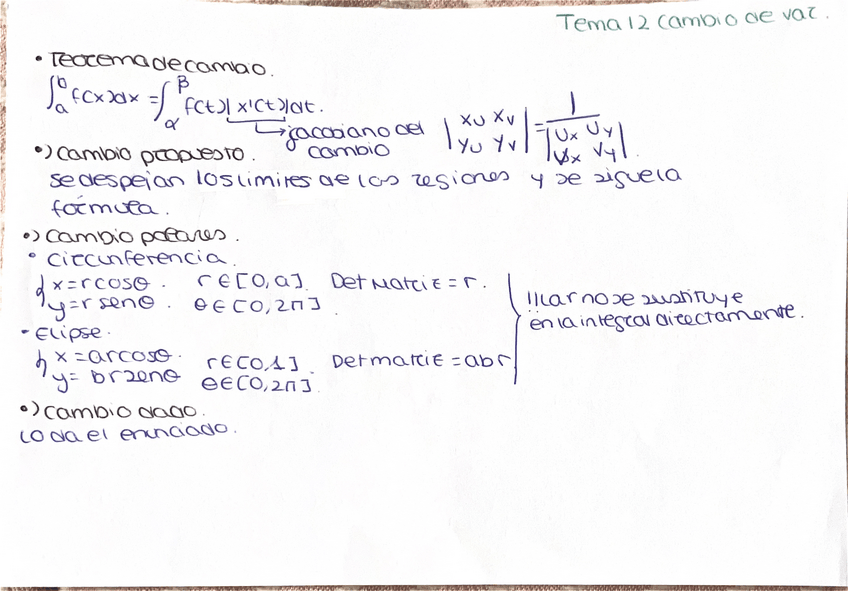 Tema 12 cambio de var.
• Teorema de cambio.
∫_a^b f(x)dx = ∫_α^β f(t)|x'(t)|dt.
↳ jacobiano del cambio |xu xv yu yv| = 1 / |ux uy vx vy|.
•) cambio propuesto.
se despejan los limites de las regiones y se sigue la
fórmula.
•) cambio polares.
• circunferencia.
{ x = r cosθ r ∈ [0,a]. Det Matriz = r.
y = r senθ. θ ∈ [0,2π].
• Elipse.
{ x = a r cosθ. r ∈ [0,1]. Det matriz = abr
y = b r senθ θ ∈ [0,2π].
no se sustituye
en la integral directamente.
•) cambio dado.
lo da el enunciado.